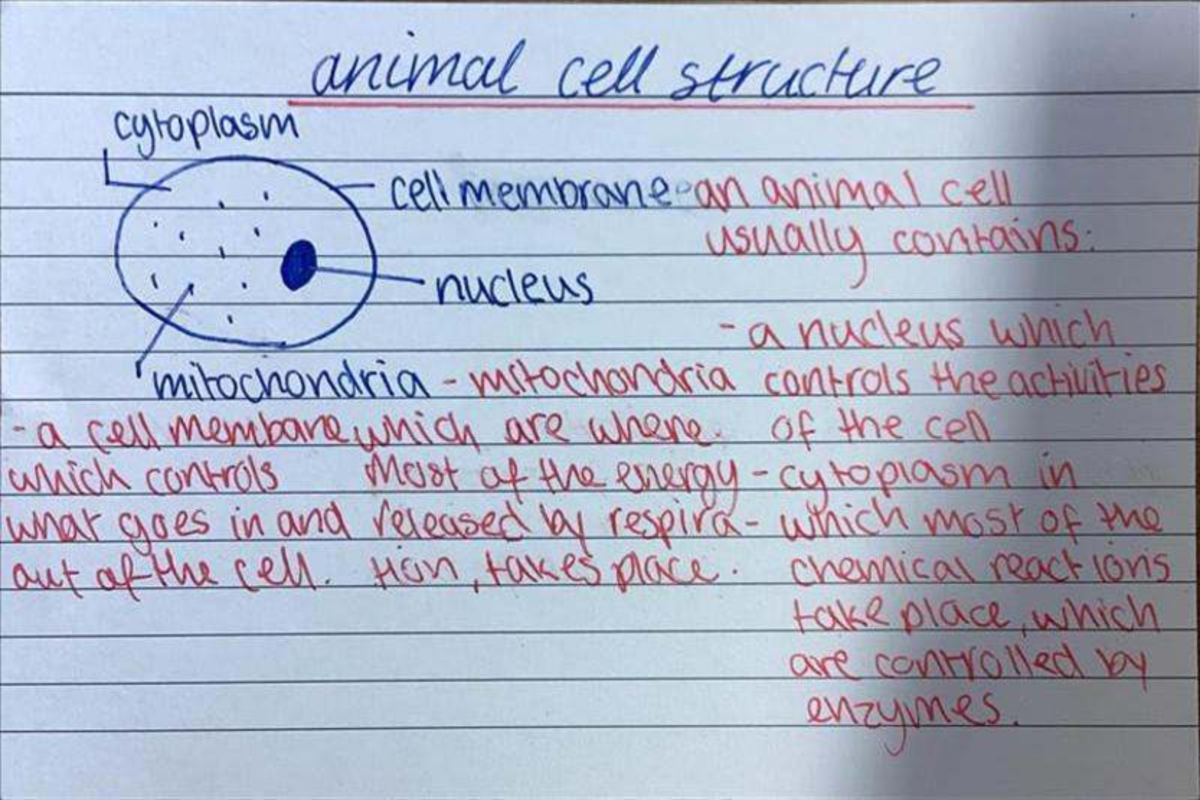 animal cell structure
cytoplasm
cell membrane
nucleus
mitochondria
an animal cell
usually contains:
- a nucleus which
controls the activities
of the cell
- cytoplasm in
which most of the
chemical reactions
take place, which
are controlled by
enzymes.
- mitochondria
which are where
most of the energy
released by respira-
tion, takes place.
- a cell membane
which controls
what goes in and
out of the cell.